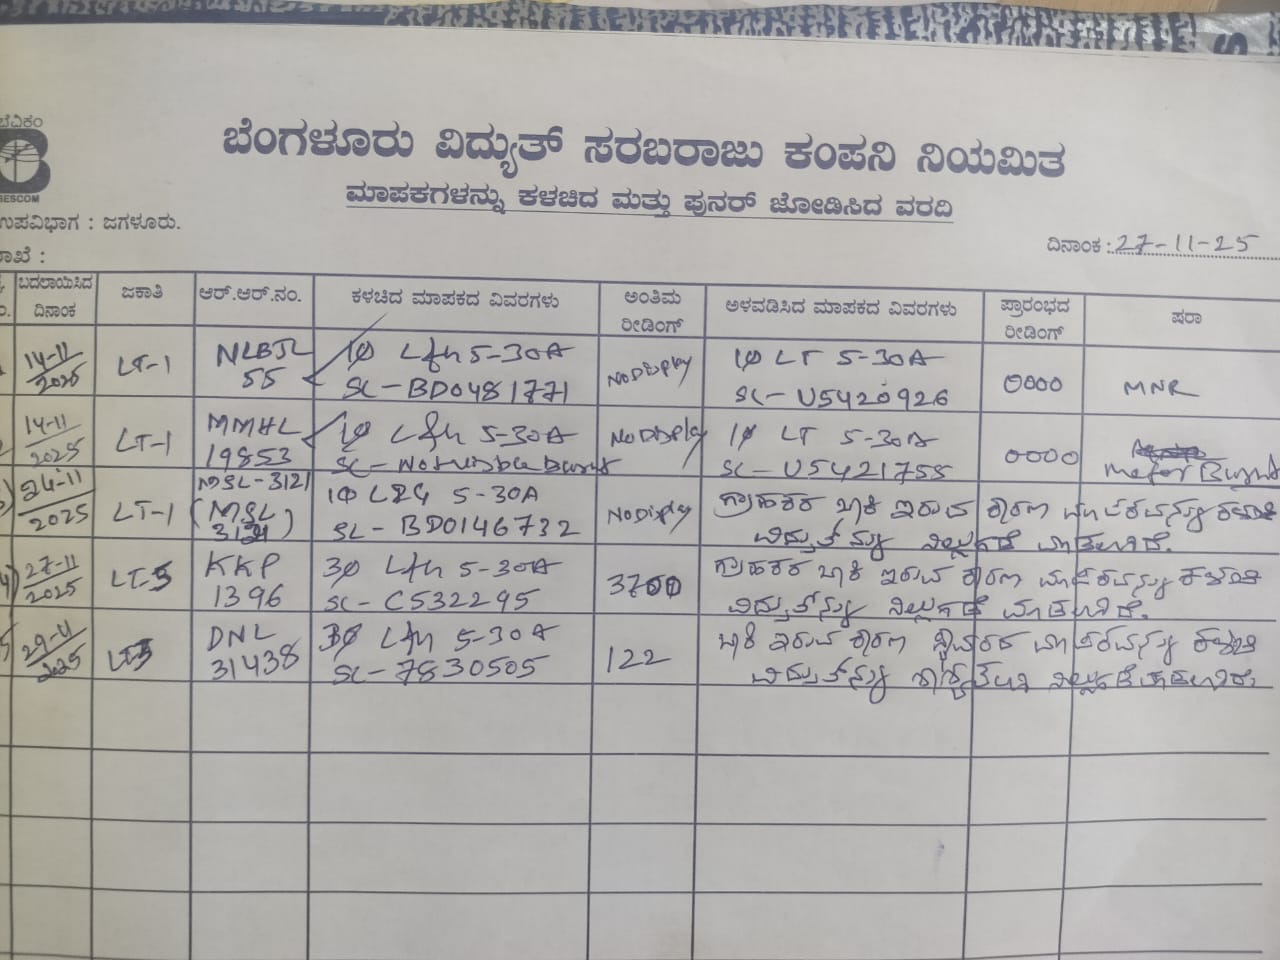 ಬೆವಿಕಂ
BESCOM
ಬೆಂಗಳೂರು ವಿದ್ಯುತ್ ಸರಬರಾಜು ಕಂಪನಿ ನಿಯಮಿತ
ಮಾಪಕಗಳನ್ನು ಕಳಚಿದ ಮತ್ತು ಪುನರ್ ಜೋಡಿಸಿದ ವರದಿ
ಉಪವಿಭಾಗ : ಜಗಳೂರು.
ದಿನಾಂಕ : 27-11-25
ಶಾಖೆ :
ಬದಲಾಯಿಸಿದ ದಿನಾಂಕ ಜಕಾತಿ ಆರ್.ಆರ್.ನಂ. ಕಳಚಿದ ಮಾಪಕದ ವಿವರಗಳು ಅಂತಿಮ ರೀಡಿಂಗ್ ಅಳವಡಿಸಿದ ಮಾಪಕದ ವಿವರಗಳು ಪ್ರಾರಂಭದ ರೀಡಿಂಗ್ ಷರಾ
14-11 LT-1 NLBJL 1Φ 5-30A No Display 1Φ LT 5-30A 0000 MNR
2025 55 SL-BD0481771 SL-U5420926
14-11 LT-1 MMHL 1Φ 5-30A No Display 1Φ LT 5-30A 0000
2025 19853 SL-Not visible burnt SL-U5421755 Meter Burnt
24-11 LT-1 MSL-3121 1Φ 5-30A No Display ಗ್ರಾಹಕರ ಬಾಕಿ ಇರುವ ಕಾರಣ ಮಾಪಕವನ್ನು ಕಳಚಿ
2025 (MSL 3121) SL-BD0146732 ವಿದ್ಯುತ್‌ನ್ನು ನಿಲ್ಲುಗಡೆ ಮಾಡಲಾಗಿದೆ.
4) 27-11 LT-5 KKP 3Φ 5-30A 3700 ಗ್ರಾಹಕರ ಬಾಕಿ ಇರುವ ಕಾರಣ ಮಾಪಕವನ್ನು ಕಳಚಿ
2025 1396 SL-C532295 ವಿದ್ಯುತ್‌ನ್ನು ನಿಲ್ಲುಗಡೆ ಮಾಡಲಾಗಿದೆ.
29-11 DNL 3Φ 5-30A 122 ಬಾಕಿ ಇರುವ ಕಾರಣ ಮಾಪಕವನ್ನು ಕಳಚಿ
2025 31438 SL-7830505 ವಿದ್ಯುತ್‌ನ್ನು ನಿಲ್ಲುಗಡೆ ಮಾಡಲಾಗಿದೆ.